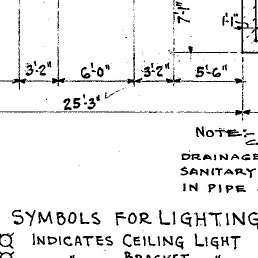 7'-1"
1'-1"
3'-2" 6'-0" 3'-2" 5'-6"
25'-3"
NOTE:-
DRAINAGE
SANITARY
IN PIPE
SYMBOLS FOR LIGHTING
INDICATES CEILING LIGHT
" BRACKET "